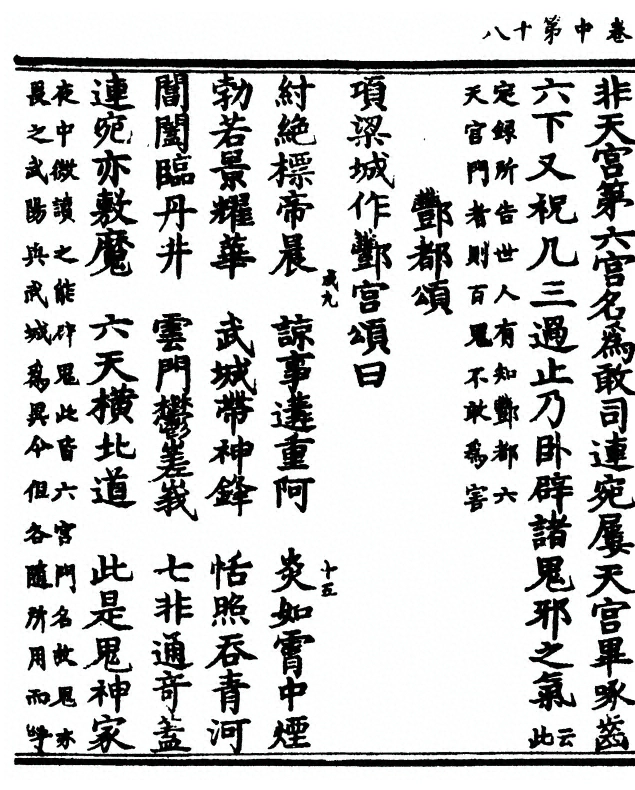 卷中第十八
非天宮第六宮名為敢司連宛屢天宮畢啄齒
六下又祝凡三過止乃卧辟諸鬼邪之氣云此
定錄所告世人有知酆都六
天宮門者則百鬼不敢為害
酆都頌
項梁城作酆宮頌曰
紂絕標帝晨 諒事遘重阿 炎如霄中煙
勃若景耀華 武城帶神鋒 恬照吞青河
閶闔臨丹井 雲門鬱嵳峩 七非通竒盖
連宛亦敷魔 六天橫北道 此是鬼神家
夜中微讀之能辟鬼此皆六宮門名故鬼亦
畏之武陽與武城為異今但各隨所用而